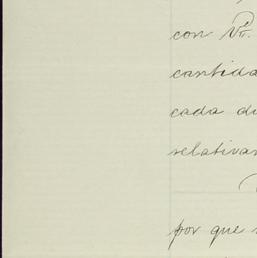 con
cantida
cada di
relativa
por que